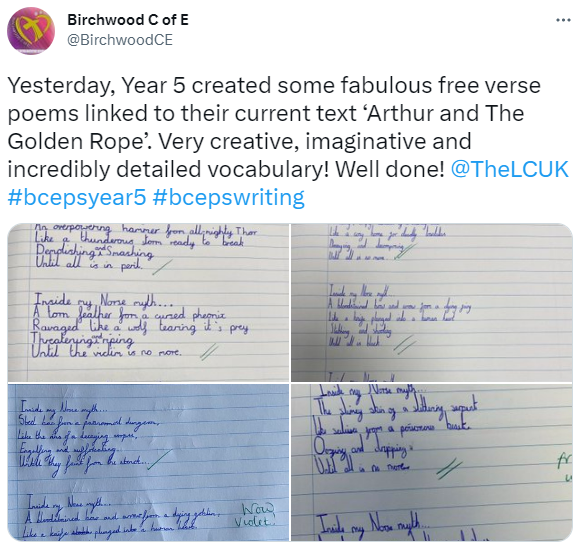 Birchwood C of E
@BirchwoodCE
Yesterday, Year 5 created some fabulous free verse
poems linked to their current text ‘Arthur and The
Golden Rope’. Very creative, imaginative and
incredibly detailed vocabulary! Well done! @TheLCUK
#bcepsyear5 #bcepswriting
An overpowering hammer from all-mighty Thor
Like a thunderous storm ready to break
Demolishing and Smashing
Until all is in peril.
Inside my Norse myth...
A torn feather from a cursed pheonix
Ravaged like a wolf tearing it's prey
Threatening and riping
Until the victim is no more.
Like a cosy home for deadly
Decaying and decomposing
Until all is no more.
Inside my Norse myth...
A bloodstained bow and arrow from a dying
Like a knife plunged into a human heart
and shooting
Until all is
Inside my Norse myth...
Shed hair from a dungeon,
Like the of a decaying corpse,
Engulfing and suffocating.
Until they faint from the stench...
Inside my Norse myth...
A bloodstained bow and arrow from a dying goblin,
Like a knife plunged into a human heart.
Wow
Violet!
Inside my Norse myth...
The slimey skin of a slithering serpent
Its saliva from a poisonous beast.
Oozing and dripping
Until all is no more
Inside my Norse myth...